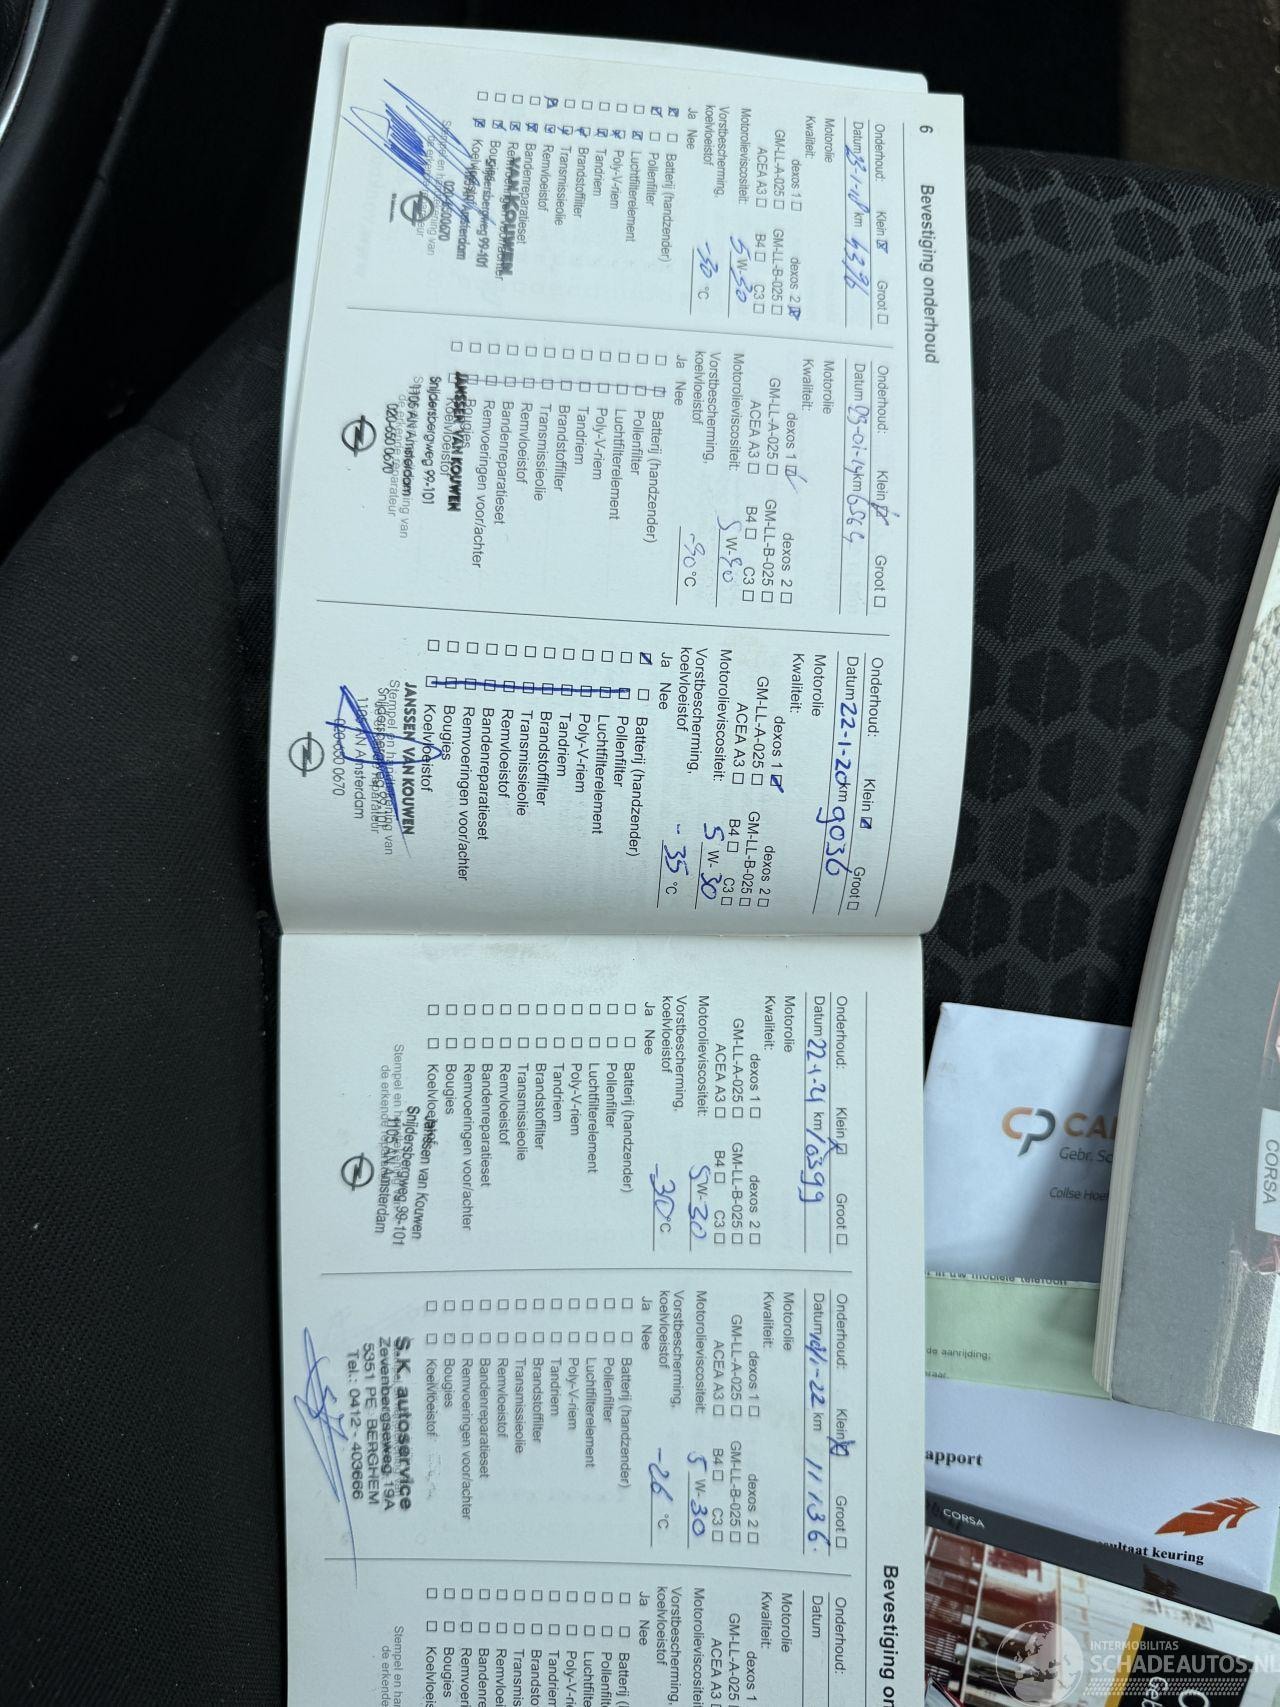 6
Bevestiging onderhoud
Onderhoud: Klein Groot
Datum 23-1-18 km 4396
Motorolie
Kwaliteit: dexos 1 dexos 2
GM-LL-A-025 GM-LL-B-025
ACEA A3 B4 C3
Motorolieviscositeit: 5 W- 30
Vorstbescherming,
koelvloeistof -30 °C
Ja Nee
Batterij (handzender)
Pollenfilter
Luchtfilterelement
Poly-V-riem
Tandriem
Brandstoffilter
Transmissieolie
Remvloeistof
Bandenreparatieset
VAN KOUWEN
Snijdersbergweg 99-101
Amsterdam
Onderhoud: Klein Groot
Datum 03-01-19 km 6564
Motorolie
Kwaliteit: dexos 1 dexos 2
GM-LL-A-025 GM-LL-B-025
ACEA A3 B4 C3
Motorolieviscositeit: 5 W-
Vorstbescherming,
koelvloeistof °C
Ja Nee
Batterij (handzender)
Pollenfilter
Luchtfilterelement
Poly-V-riem
Tandriem
Brandstoffilter
Transmissieolie
Remvloeistof
Bandenreparatieset
Remvoeringen voor/achter
Bougies
Koelvloeistof
JANSSEN VAN KOUWEN
Snijdersbergweg 99-101
1105 AN Amsterdam
020-600 0670
Onderhoud: Klein Groot
Datum 22-1-20 km 9036
Motorolie
Kwaliteit: dexos 1 dexos 2
GM-LL-A-025 GM-LL-B-025
ACEA A3 B4 C3
Motorolieviscositeit: 5 W- 30
Vorstbescherming,
koelvloeistof - 35 °C
Ja Nee
Batterij (handzender)
Pollenfilter
Luchtfilterelement
Poly-V-riem
Tandriem
Brandstoffilter
Transmissieolie
Remvloeistof
Bandenreparatieset
Remvoeringen voor/achter
Bougies
Koelvloeistof
JANSSEN VAN KOUWEN
1105 AN Amsterdam
020-600 0670
Bevestiging on
Onderhoud: Klein Groot
Datum 22-1-21 km 10399
Motorolie
Kwaliteit: dexos 1 dexos 2
GM-LL-A-025 GM-LL-B-025
ACEA A3 B4 C3
Motorolieviscositeit: 5 W- 30
Vorstbescherming,
koelvloeistof -30 °C
Ja Nee
Batterij (handzender)
Pollenfilter
Luchtfilterelement
Poly-V-riem
Tandriem
Brandstoffilter
Transmissieolie
Remvloeistof
Bandenreparatieset
Remvoeringen voor/achter
Bougies
Koelvloeistof
Janssen van Kouwen
Snijdersbergweg 99-101
1105 AN Amsterdam
Onderhoud: Klein Groot
Datum -22 km 11136.
Motorolie
Kwaliteit: dexos 1 dexos 2
GM-LL-A-025 GM-LL-B-025
ACEA A3 B4 C3
Motorolieviscositeit: 5 W- 30
Vorstbescherming,
koelvloeistof -26 °C
Ja Nee
Batterij (handzender)
Pollenfilter
Luchtfilterelement
Poly-V-riem
Tandriem
Brandstoffilter
Transmissieolie
Remvloeistof
Bandenreparatieset
Remvoeringen voor/achter
Bougies
Koelvloeistof
S.K. autoservice
Zevenbergseweg 19A
5351 PE BERGHEM
Tel.: 0412 - 403666
Onderhoud:
Datum
Motorolie
Kwaliteit:
GM-LL-A-025
ACEA A3
Motorolieviscositeit
Vorstbescherming,
koelvloeistof
Ja Nee
Batterij (
Pollenfilter
Luchtfilter
Poly-V-ri
Tandriem
Brandsto
Transmis
Remvloei
Bandenre
Remvoer
Bougies
Koelvloeis
Stempel en han
de erkende
CP CA
Gebr. Sc
Collse Hoe
CORSA
in uw mobiele telefoon
de aanrijding;
apport
CORSA
sultaat keuring
INTERMOBILITAS
SCHADEAUTOS.NL